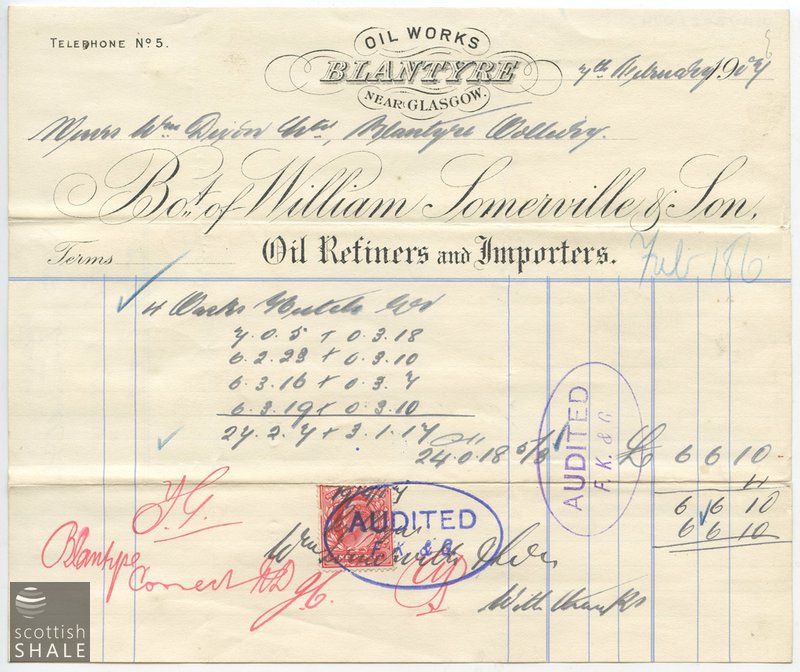 TELEPHONE No 5.
OIL WORKS
BLANTYRE
NEAR GLASGOW.
7th February 1907
Messrs Wm Dixon Ltd, Blantyre Colliery.
Bot. of William Somerville & Son,
Terms
Oil Refiners and Importers.
Feb 186
4 Casks
7.0.5 + 0.3.18
6.2.23 + 0.3.10
6.3.16 + 0.3.7
6.3.19 + 0.3.10
27.2.7 + 3.1.17
24.0.18 5/3 £ 6 6 10
AUDITED
F. K. & G.
6 6 10
6 6 10
J.G.
AUDITED
F. K. & G.
Blantyre
Correct
With thanks
scottish
SHALE